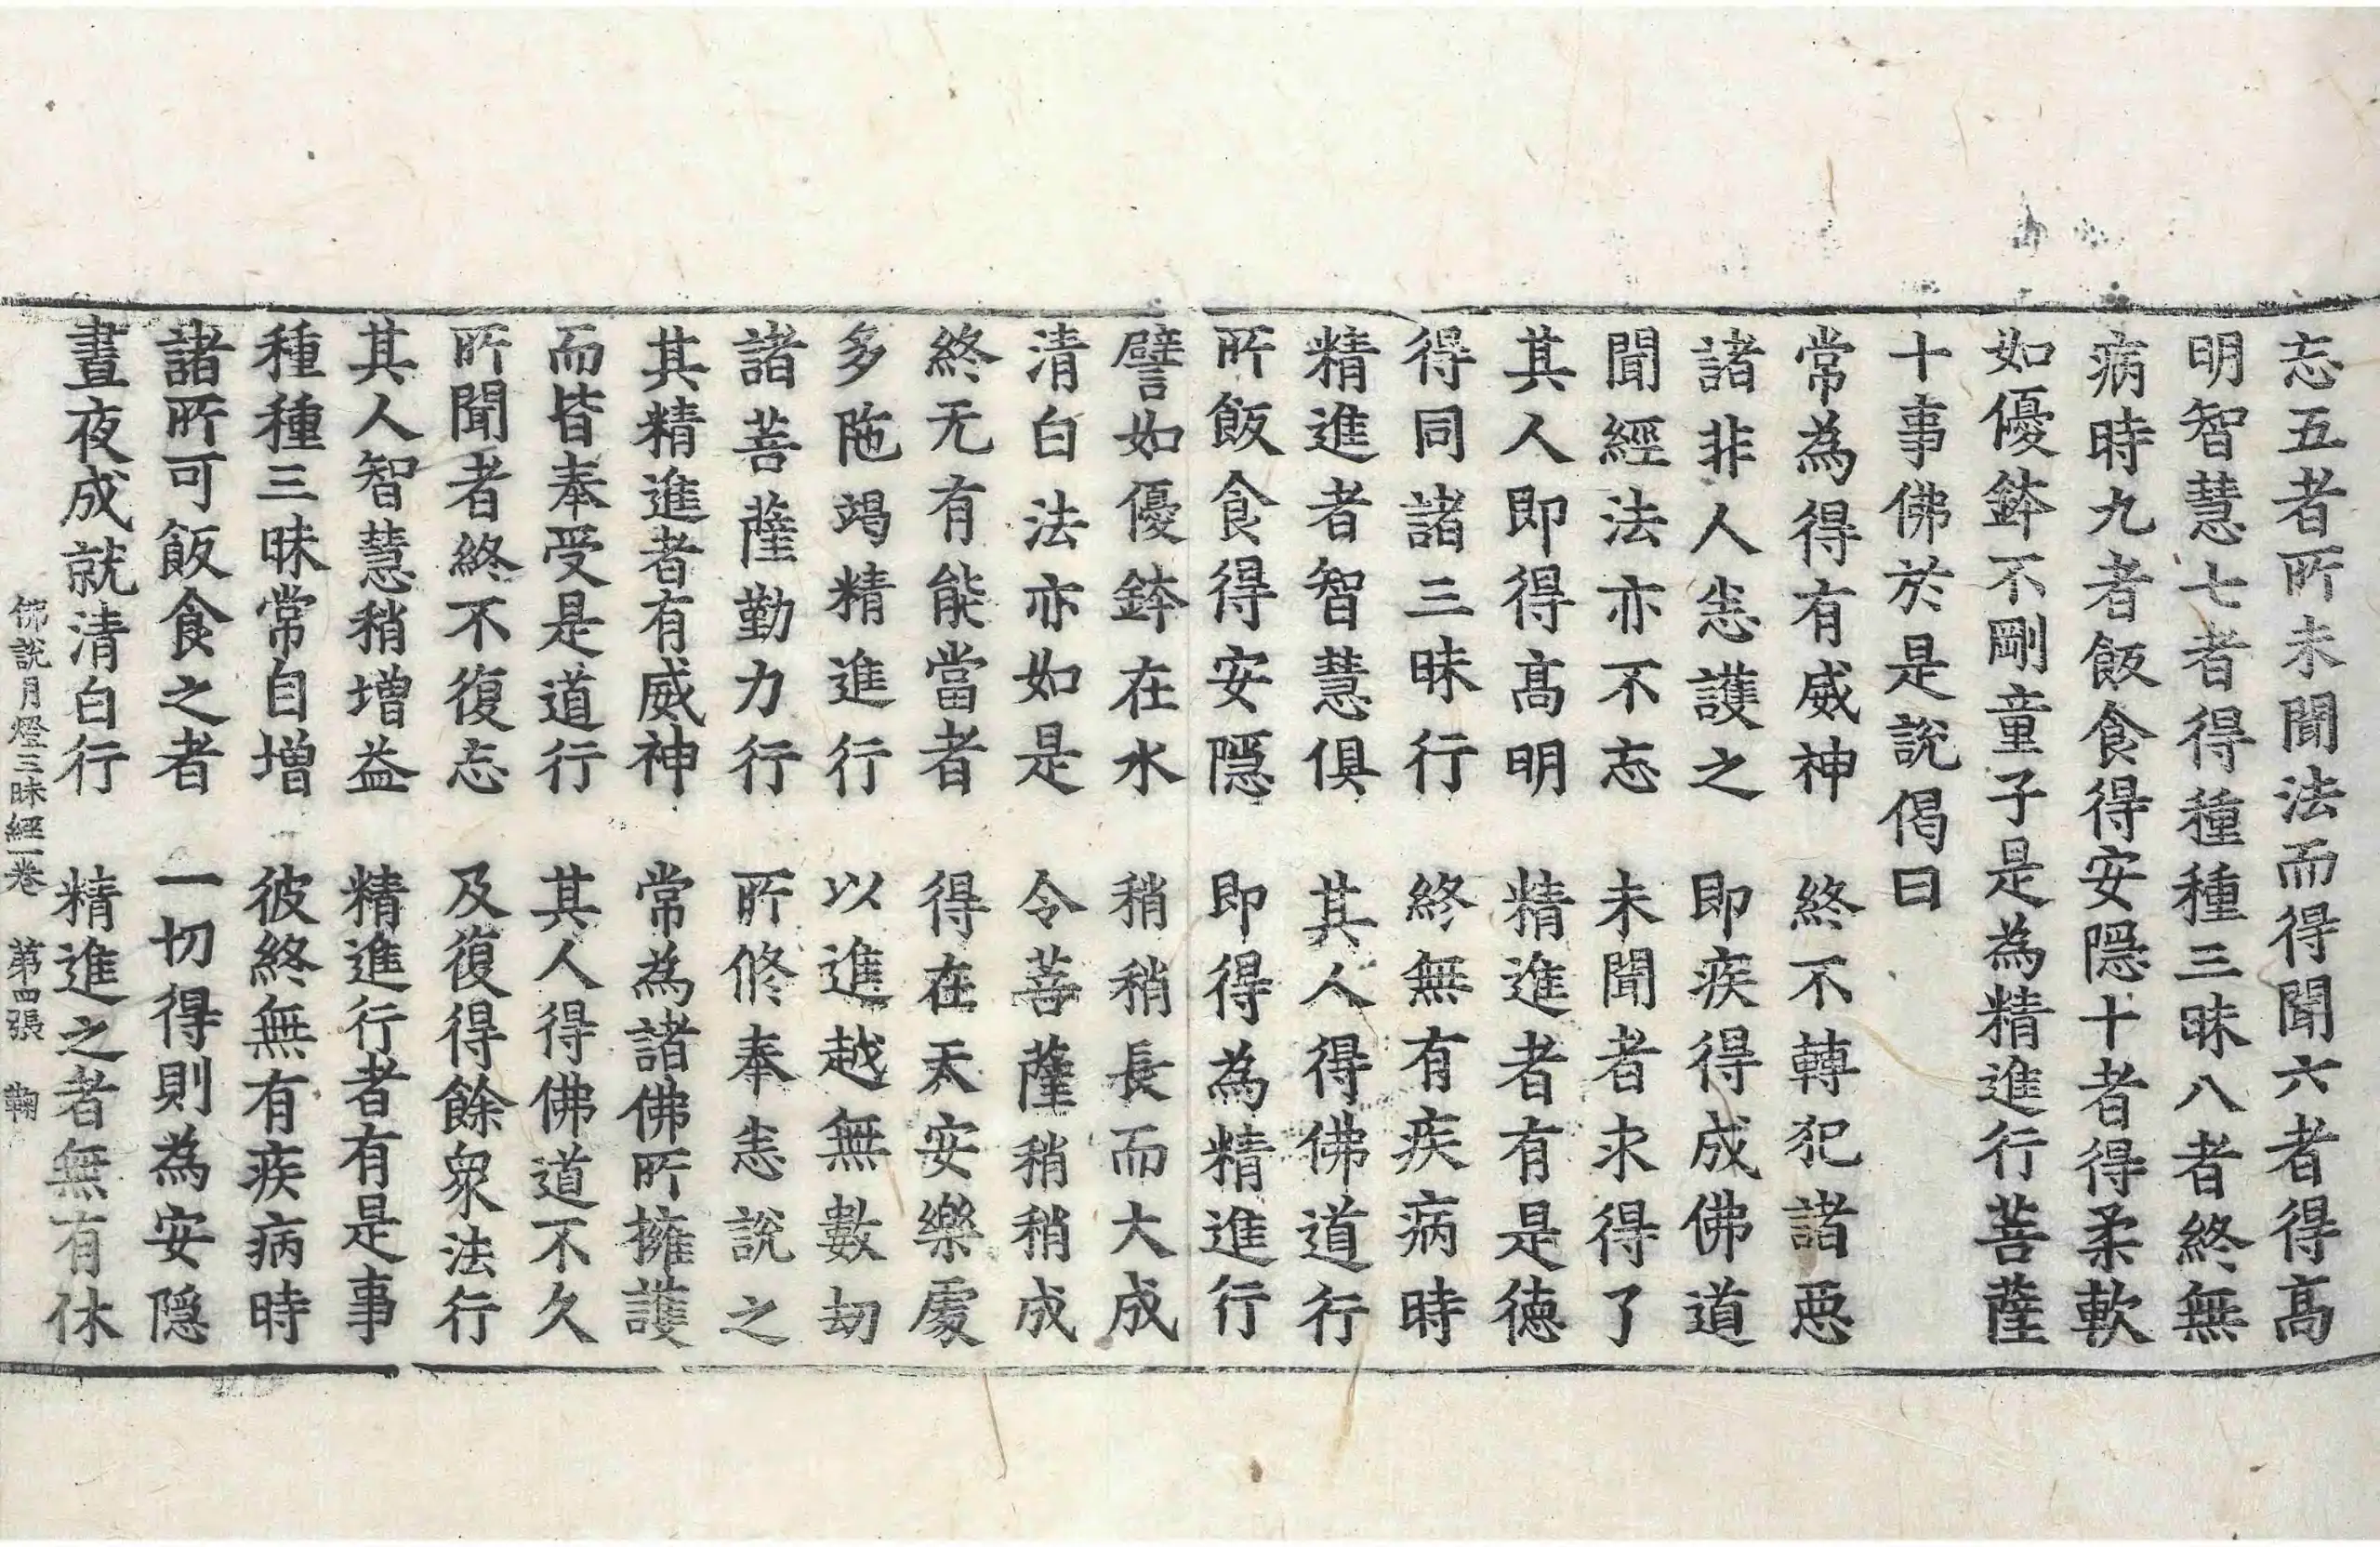 忘五者所未聞法而得聞六者得高
明智慧七者得種種三昧八者終無
病時九者飯食得安隱十者得柔軟
如優鉢不剛童子是為精進行菩薩
十事佛於是說偈曰
常為得有威神　終不轉犯諸惡
諸非人恙護之　即疾得成佛道
聞經法亦不忘　未聞者求得了
其人即得高明　精進者有是德
得同諸三昧行　終無有疾病時
精進者智慧俱　其人得佛道行
所飯食得安隱　即得為精進行
譬如優鉢在水　稍稍長而大成
清白法亦如是　令菩薩稍稍成
終无有能當者　得在天安樂處
多陁竭精進行　以進越無數劫
諸菩薩勤力行　所修奉恙說之
其精進者有威神　常為諸佛所擁護
而皆奉受是道行　其人得佛道不久
所聞者終不復忘　及復得餘眾法行
其人智慧稍增益　精進行者有是事
種種三昧常自增　彼終無有疾病時
諸所可飯食之者　一切得則為安隱
晝夜成就清白行　精進之者無有休
佛說月燈三昧經一卷　第四張　鞠